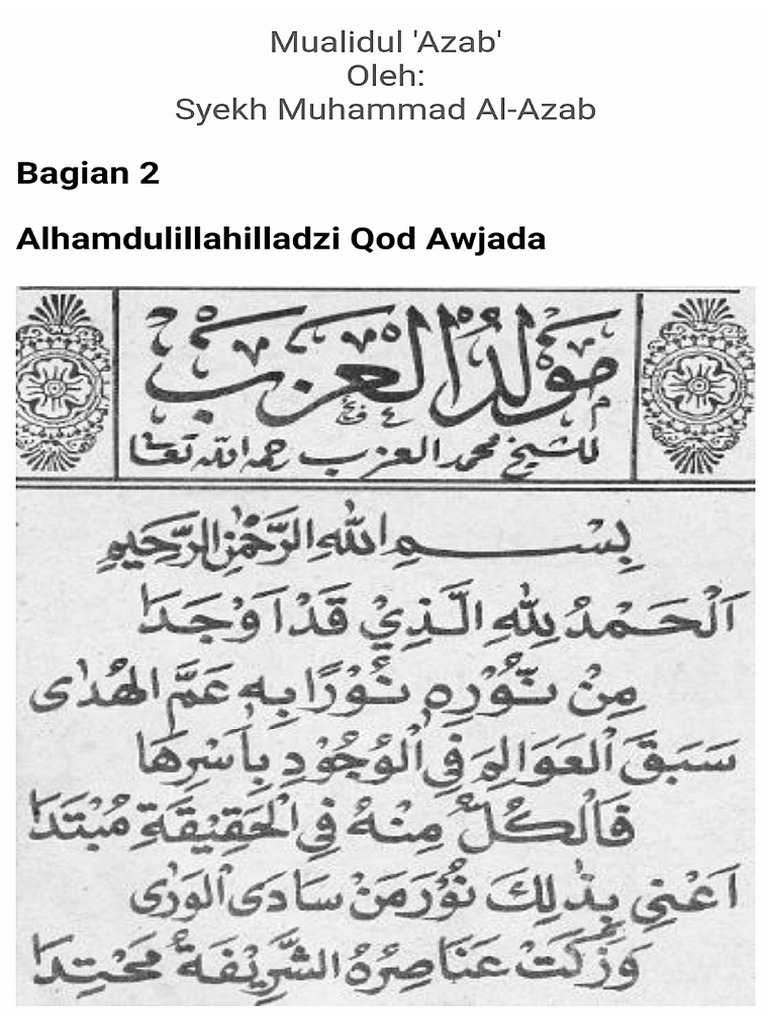 Mualidul 'Azab'
Oleh:
Syekh Muhammad Al-Azab
Bagian 2
Alhamdulillahilladzi Qod Awjada
مَوْلِدُ الْعَزَبْ
للشيخ محمد العزب رحمه الله تعالى
بِسْمِ اللهِ الرَّحْمٰنِ الرَّحِيمِ
اَلْحَمْدُ لِلّٰهِ الَّذِيْ قَدْ اَوْجَدَا
مِنْ نُّوْرِهِ نُوْرًا بِهِ عَمَّ الْهُدٰى
سَبَقَ الْعَوَالِمَ فِي الْوُجُوْدِ بِاَسْرِهَا
فَالْكُلُّ مِنْهُ فِي الْحَقِيْقَةِ مُبْتَدَا
اَعْنِي بِذٰلِكَ نُوْرَ مَنْ سَادَى الْوَرٰى
وَزَكَتْ عَنَاصِرُهُ الشَّرِيْفَةُ مَحْتِدَا